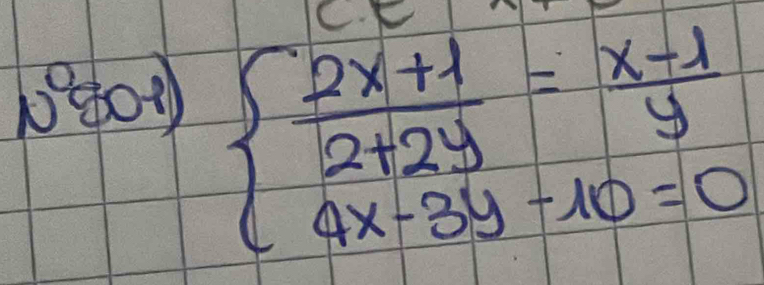 C.E
N°301) { (2x+1)/(2+2y) = (x-1)/y
4x-3y-10=0